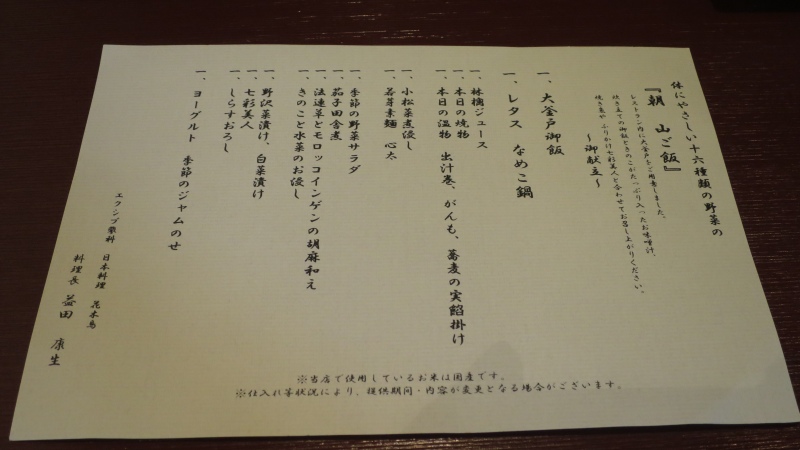 体にやさしい十六種類の野菜の
『朝 山ご飯』
レストラン内に大釜戸をご用意しました。
炊き立ての御飯ときのこがたっぷり入ったお味噌汁、
焼き魚やふりかけ七彩美人と合わせてお召し上がりください。
〜御献立〜
一、大釜戸御飯
一、レタス なめこ鍋
一、林檎ジュース
一、本日の焼物
一、本日の温物 出汁巻、がんも、蕎麦の実餡掛け
一、小松菜煮浸し
一、若芽素麺 心太
一、季節の野菜サラダ
一、茄子田舎煮
一、法連草とモロッコインゲンの胡麻和え
一、きのこと水菜のお浸し
一、野沢菜漬け、白菜漬け
一、七彩美人
一、しらすおろし
一、ヨーグルト 季節のジャムのせ
エクシブ蓼科 日本料理 花木鳥
料理長 益田 康生
※当店で使用しているお米は国産です。
※仕入れ等状況により、提供期間・内容が変更となる場合がございます。